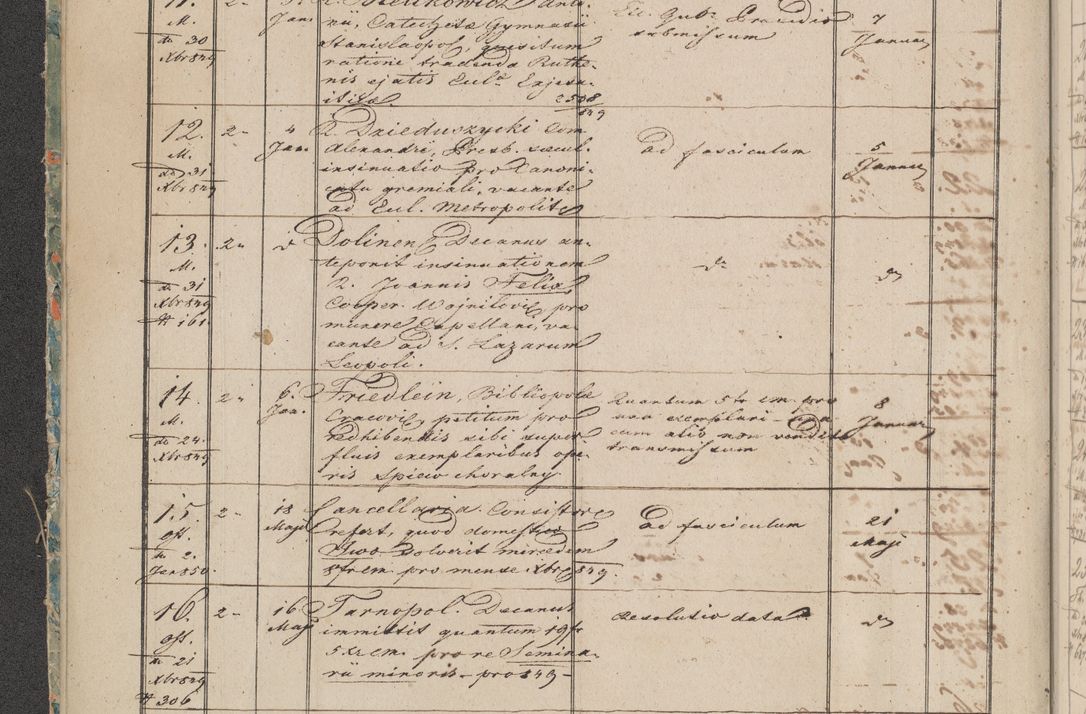 11. 2.
M.
de 30
Xbr 849
Jan.
rii, Catechetæ Gymnasii
Stanislaopol, quæsitum
ratione tradenda Ruthe-
nis ejatis Eul.
2598/849
Eu. Gub. Præsidio
submissum
7
Januar
12. 2.
M.
de 31
Xbr 849
4
Jan.
R. Dzieduszycki Com.
Alexandri, Presb. sæcul.
insinuatio pro Canoni-
catu gremiali, vacante
ad Eul. Metropolit
Ad fasciculum
5
Januar
13. 2.
M.
de 31
Xbr 849
# 161
Dolinen. Decanus an-
teponit insinuationem
2. Joannis Felix
Cooper. Wojnilovic pro
munere Capellani, va-
cante ad S. Lazarum
Leopoli.
do
do
14. 2.
M.
de 24.
Xbr 849
6.
Jan.
Friedlein, Bibliopola
Cracovic petitum pro
redhibendis sibi super
fluis exemplaribus ope-
ris Spiew choralny
Quantum 5 fr cm. pro
uno exemplari
cum alio non vendito
transmissum
8
Januar
15. 2.
gff.
de 2.
Jan 850.
18
Maji
Cancellaria Consistor
refert, quod domestico
Iwo solverit mercedem
8 fr cm. pro mense Xbr 849.
Ad fasciculum
21
Maji
16. 2.
gff.
de 21
Xbr 849
# 306
16
Maji
Tarnopol. Decanus
immittit quantum 19 fr
5 xr cm. pro re Semina-
rii minoris pro 849
Resolutio data
do